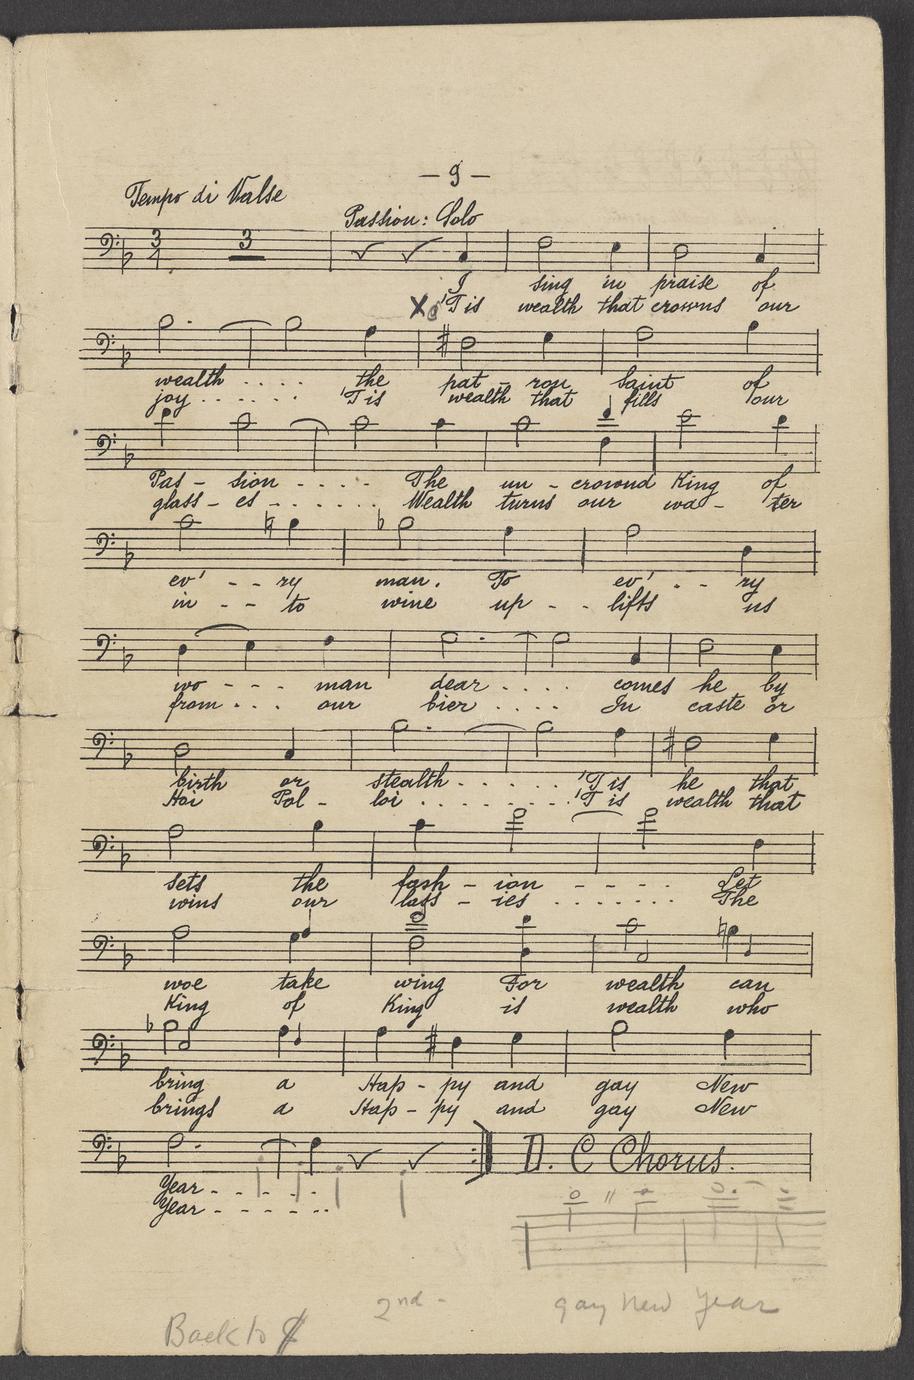 — 9 —
Tempo di Valse
Passion: Solo
3 3
4
I sing in praise of
X 'Tis wealth that crowns our
wealth . . . . the pat - ron saint of
joy . . . . . . 'Tis wealth that fills our
Pas - sion - - - - The un - crownd King of
glass - es - . . . . . . Wealth turns our wa - ter
ev' - - ry man. To ev' - - ry
in - - to wine up - - lifts us
wo - - - man dear . . . . comes he by
from . . . our bier . . . . In caste or
birth or stealth . . . . . . 'Tis he that
Hoi Pol - loi . . . . . . . . 'Tis wealth that
sets the fash - ion - - - - - Let
wins our lass - ies . . . . . . . . The
woe take wing For wealth can
King of King is wealth who
bring a Hap - py and gay New
brings a Hap - py and gay New
D. C Chorus.
Year - - - - - .
Year - - - - - . .
2nd - gay new Year
Back to